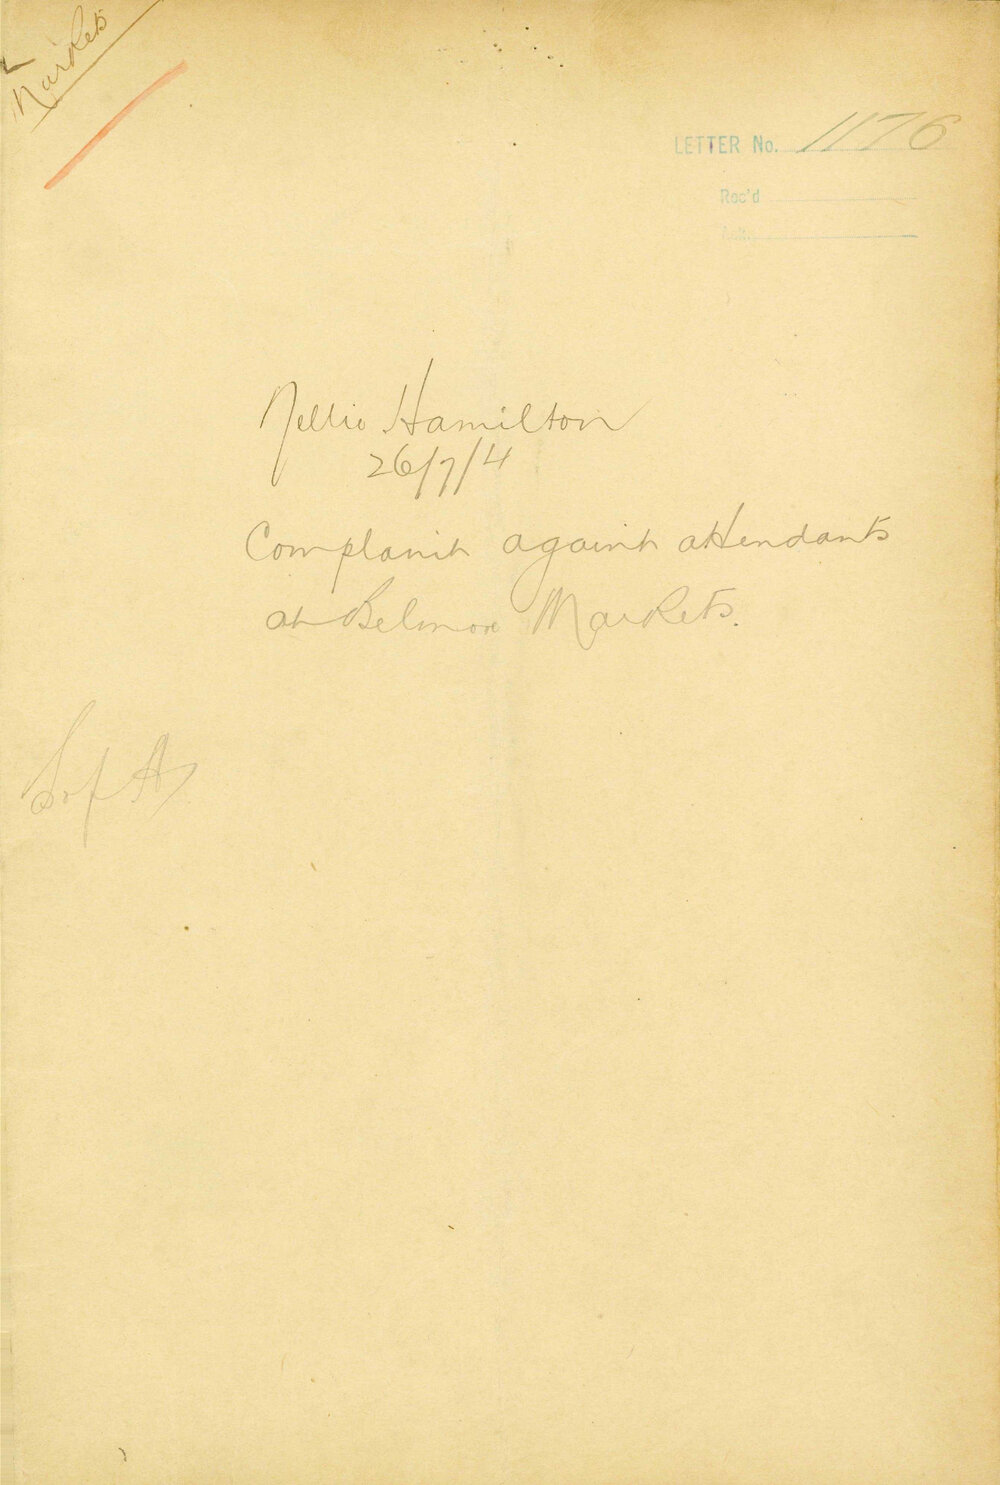 Markets
LETTER No. 1176
Rec'd
Nellie Hamilton
26/7/4
Complaint against attendants
at Belmore Markets.